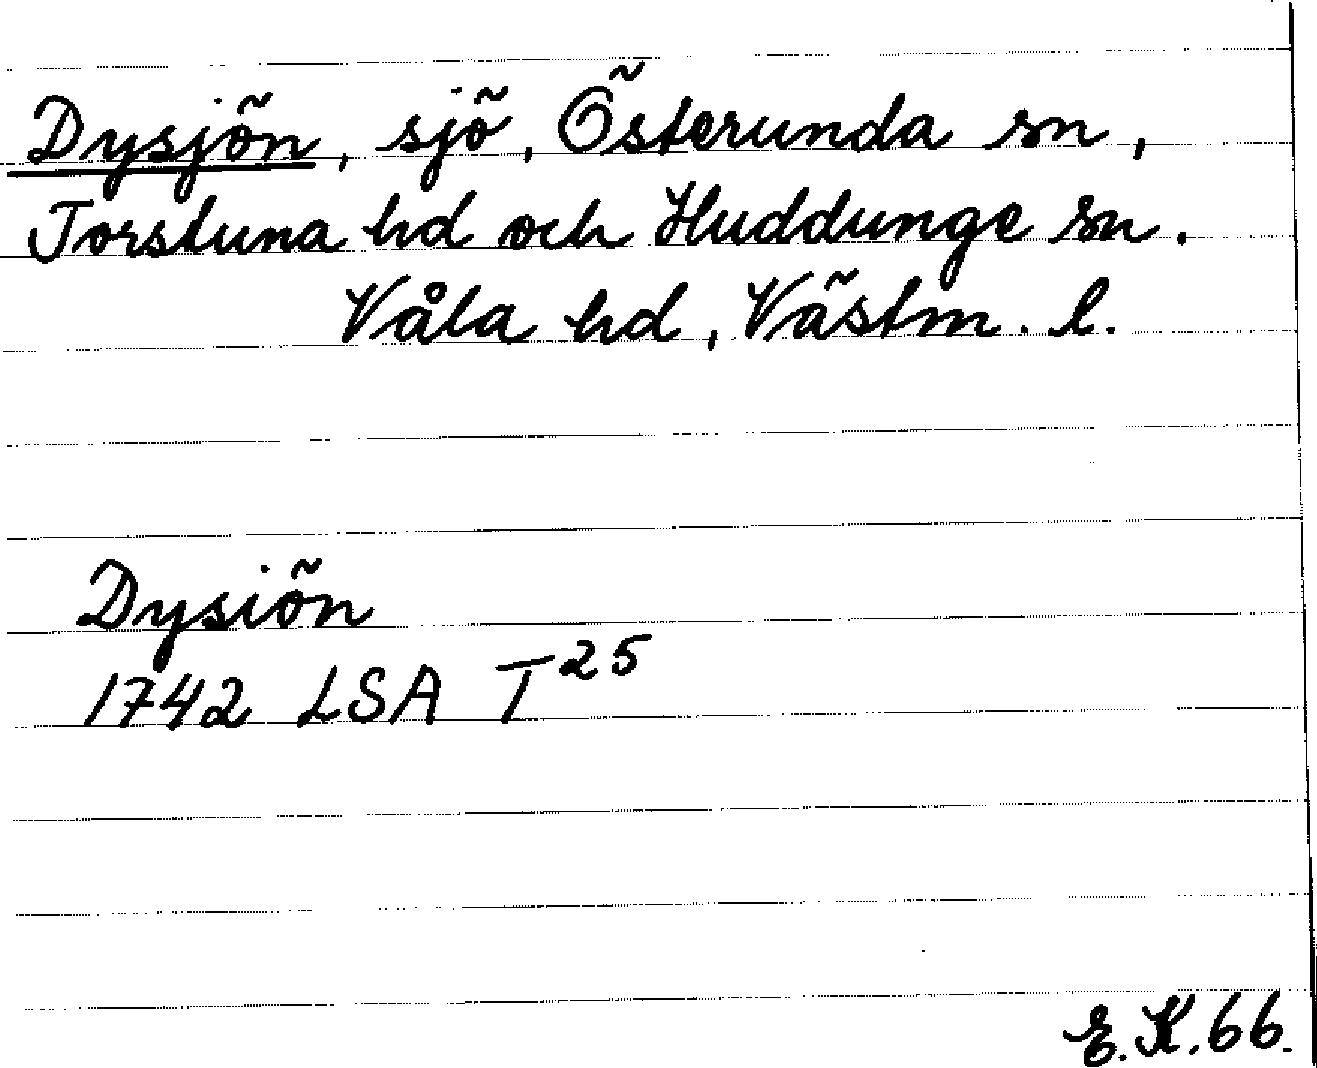 Dysjön, sjö, Österunda sn,
Torstuna hd och Huddunge sn.
Våla hd, Västm. l.
Dysiön
1742 LSA T25
E.K.66.